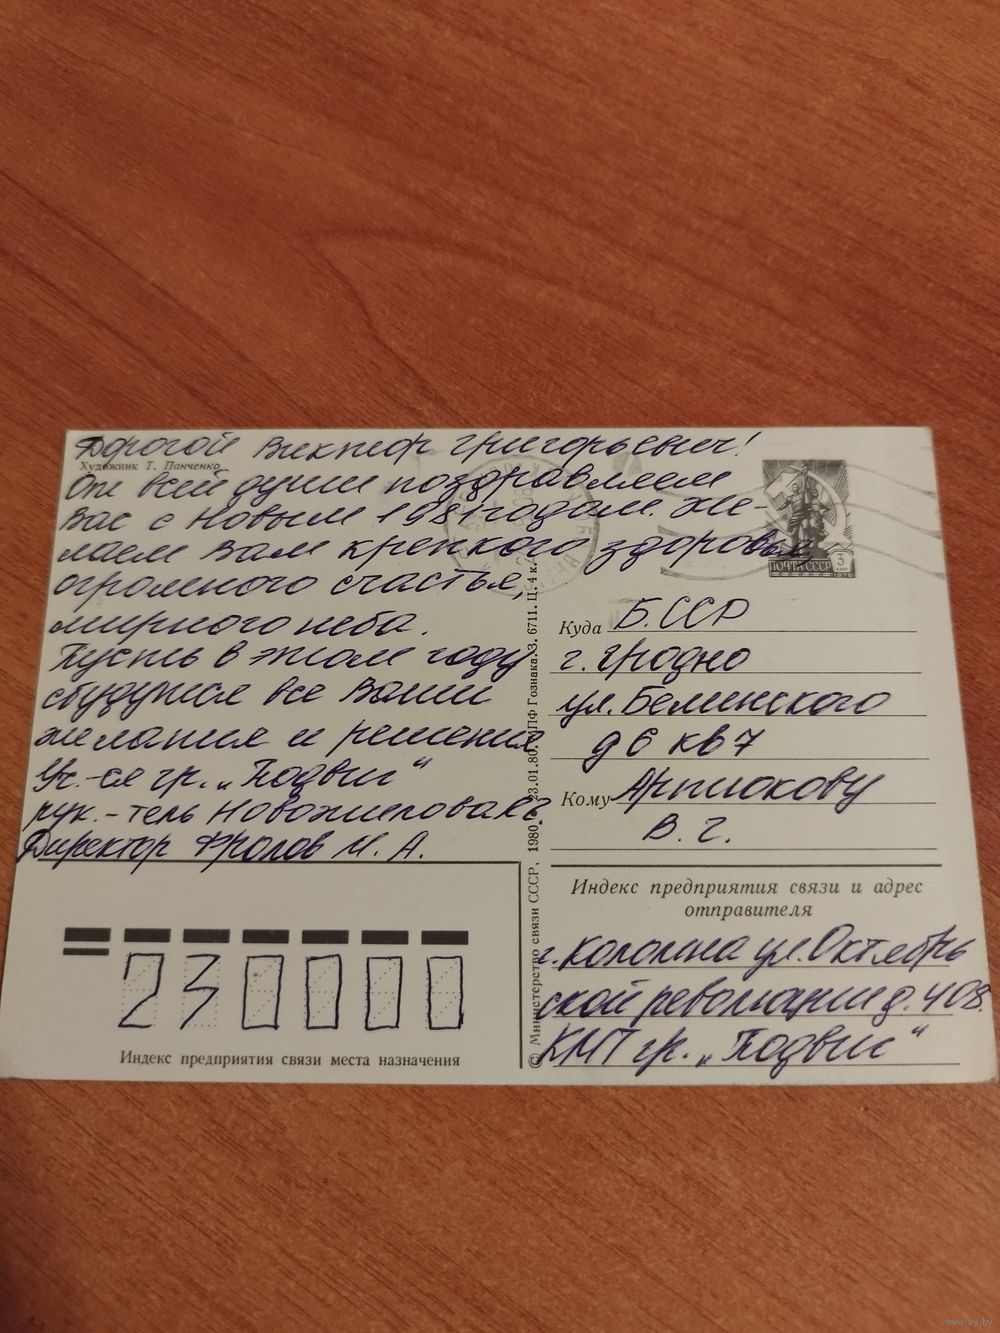 Дорогой Виктор Григорьевич!
Художник Т. Панченко
От всей души поздравляем
Вас с Новым 1981 годом. Же-
лаем Вам крепкого здоровья
огромного счастья,
мирного неба.
Пусть в этом году
сбудутся все Ваши
желания и решения
Уч.-ся гр. „Подвиг"
рук.-тель Новожилова
Директор Фролов М. А.
Индекс предприятия связи места назначения
230000
© Министерство связи СССР. 1980. 23.01.80. МПФ Гознака. З. 6711. Ц. 4 к.
ПОЧТА СССР
3 коп
1976
Куда Б.ССР
г. Гродно
ул. Белинского
д 6 кв 7
Кому Артюкову
В. Г.
Индекс предприятия связи и адрес
отправителя
г. Коломна ул. Октябрь
ской революции д. 408.
КМТ гр. „Подвиг"
www.ay.by